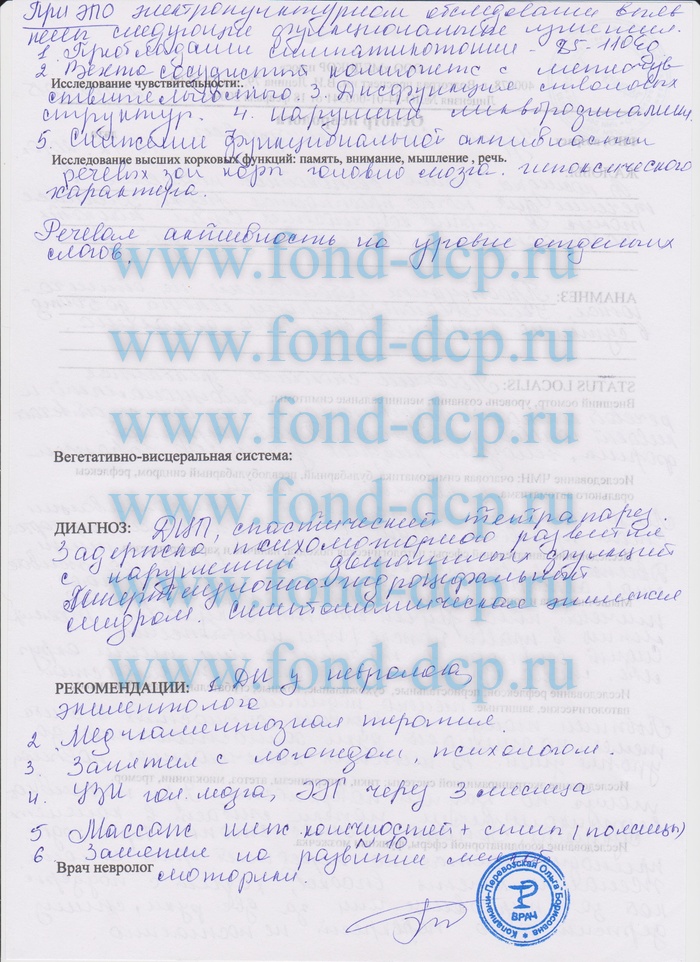 При ЭПО электропунктурном обследовании выяв
лены следующие функциональные изменения.
1. Преобладании симпатикотонии - 85-110
2. Вегето сосудистый компонент с метеочув
Исследование чувствительности:.
ствительностью. 3. Дисфункция стволовых
структур. 4. нарушения ликвородинамики,
5. Снижение функциональной активности
Исследование высших корковых функций: память, внимание, мышление , речь.
речевых зон коры головно мозга. гипоксического
характера.
Речевая активность на уровне отдельных
слогов.
www.fond-dcp.ru
www.fond-dcp.ru
www.fond-dcp.ru
Вегетативно-висцеральная система:
www.fond-dcp.ru
ДИАГНОЗ: ДЦП, спастический тетрапарез.
Задержка психомоторного развития
с нарушением двигательных функций
www.fond-dcp.ru
Гипертензионно гидроцефальный
синдром. Симптоматическая эпилепсия
www.fond-dcp.ru
РЕКОМЕНДАЦИИ: 1. ДН у невролога,
эпилептолога
2. Медикаментозная терапия.
3. Занятия с логопедом, психологом.
4. УЗИ гол. мозга, ЭЭГ через 3 месяца
www.fond-dcp.ru
5 Массаж ниж. конечностей + спины (поясницы)
N 10
6 Занятия по развитию мелкой
Врач невролог моторики
Копалкани-Перевозская Ольга Борисовна
ВРАЧ